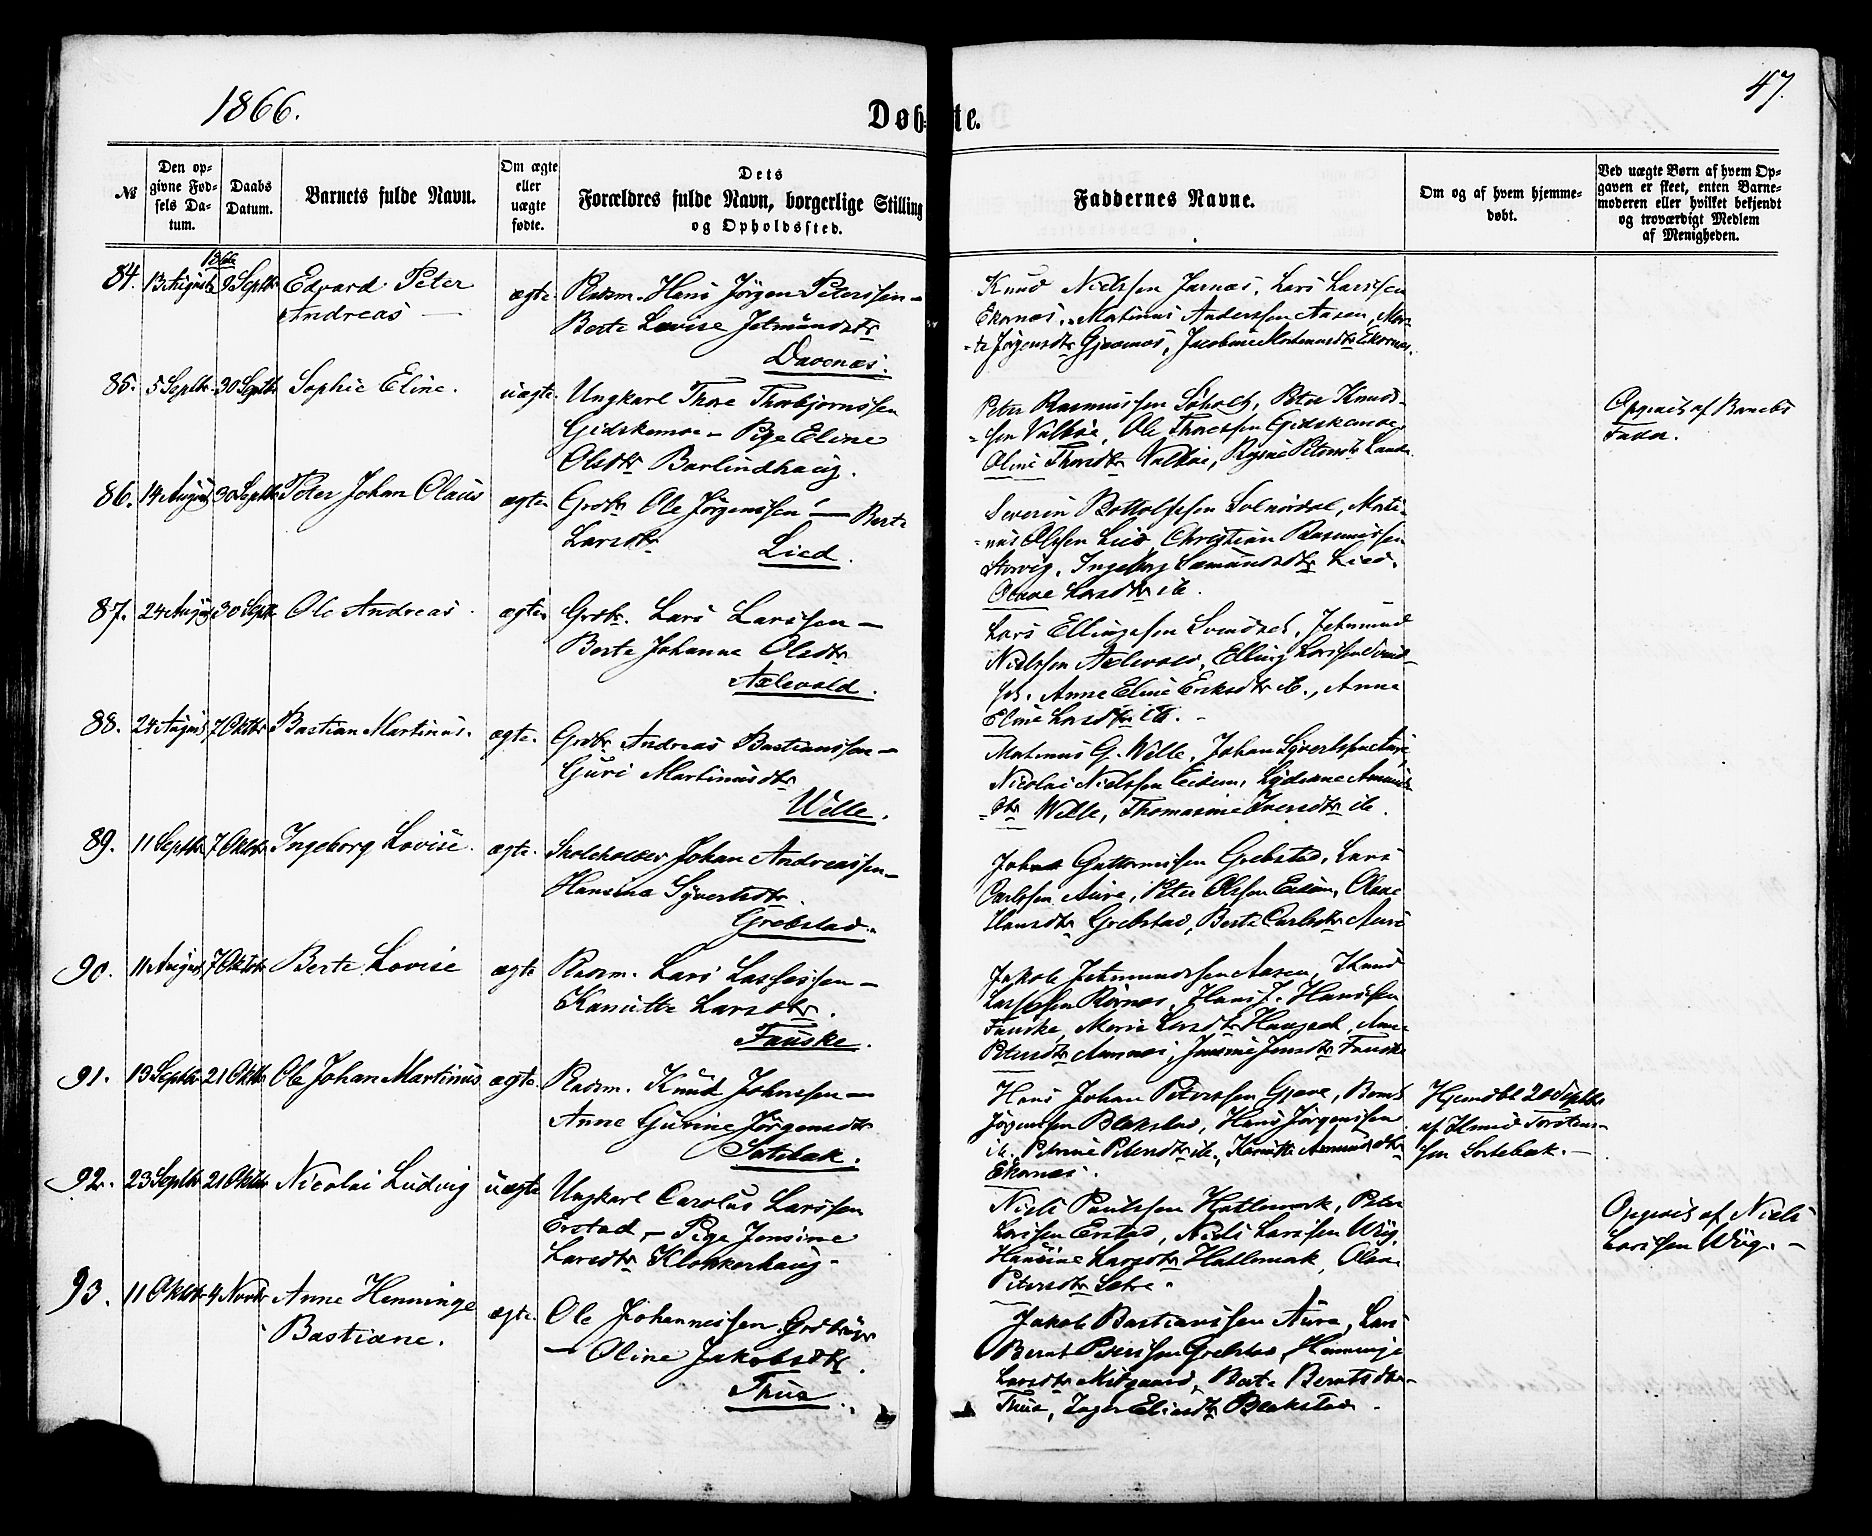 1866.
Døbte.
47.
№
Den opgivne Fødsels Datum.
Daabs Datum.
Barnets fulde Navn.
Om ægte eller uægte fødte.
Dets Forældres fulde Navn, borgerlige Stilling og Opholdssted.
Faddernes Navne.
Om og af hvem hjemmedøbt.
Ved uægte Børn af hvem Opgaven er skeet, enten Barnemoderen eller hvilket bekjendt og troværdigt Medlem af Menigheden.
84. 13 August 9 Septbr Edvard Peter
Andreas
ægte. Pladsm. Hans Jörgen Peterssen –
Berte Lovise Jetmundsdtr
Davenæs.
Knud Nielssen Jarnæs, Lars Larssen
Ekornæs, Martinus Anderssen Aasen, Mar-
te Jörgensdtr Gjævenæs, Jacobine Martinusdtr Ekornæs.
85. 5 Septbr. 30 Septbr Sophie Eline.
uægte. Ungkarl Thore Thorbjørnssen
Gidskemoe – Pige Eline
Olsdtr Barlindhaug.
Peter Rasmussen Søholt, Peter Knuds-
sen Valköe, Ole Thoressen Gidskemoe,
Oline Thorsdtr Valköe,
Opgivet af Barnets
Fader.
86. 14 August 30 Septbr Peter Johan Olaus
ægte. Grdbr Ole Jörgenssen – Berte
Larsdtr
Lied.
Severin Bottolfssen Solnördal, Marti-
nus Olssen Lied, Christian Rasmussen
Storvig, Ingeborg Samundsdtr Lied,
Olave Larsdtr ib.
87. 24 August 30 Septbr Ole Andreas.
ægte. Grdbr. Lars Larssen –
Berte Johanne Olsdtr
Aslevold.
Lars Ellingssen Svendset, Jetmund
Nielssen Aslevold, Elling Larssen Svend-
set. Anne Eline Eriksdtr ib., Anne
Eline Larsdtr ib. –
88. 24 August 7 Oktbr Bastian Martinus.
ægte. Grdbr. Andreas Bastianssen –
Guri Martinusdtr
Welle.
Martinus G. Welle, Johan Syvertssen Aure,
Nicolai Nielssen
dtr Welle, Thomasine Iversdtr ib.
89. 11 Septbr 7 Oktbr Ingeborg Lovise.
ægte. Skoleholder Johan Andreassen –
Hansina Syvertsdtr.
Grebstad.
Johan Guttormssen Grebstad, Lars
Carlssen Aure, Peter Olssen Eidem, Olave
Hansdtr Grebstad, Berte Carlsdtr Aure
90. 11 August 7 Oktbr Berte Lovise
ægte Pladsm. Lars Lassessen –
Kanutte Larsdtr.
Fauske.
Jakob Jetmundssen Aasen, Knud
Lassessen Rörnes, Hans J. Hanssen
Fauske, Marie Larsdtr Haugset, Ane
Petersdtr Aursnes, Jensine Jensdtr Fauske
91. 13 Septbr 21 Oktbr Ole Johan Martinus
ægte. Pladsm. Knud Johnssen –
Anne Gurine Jörgensdtr
Satebak.
Hans Johan Peterssen Gjæve, Bernt
Jörgenssen Blakstad, Hans Jörgenssen
ib. Petrine Petersdtr ib., Karnitte Amundsdtr
Ekornæs.
Hjemdbt 20 Septbr
af Knud Torstens-
sen Sortebæk. –
92. 23 Septbr 21 Oktbr Nicolai Ludvig
uægte Ungkarl Carolus Larssen
Erstad, – Pige Jensine
Larsdtr Klokkerhaug –
Niels Paulssen Hatlemark, Peter
Larssen Erstad, Niels Larssen Wiig,
Hansine Larsdtr Hatlemark, Olave
Petersdtr Sætre.
Opgivet af Niels
Larssen Wiig. –
93. 11 Oktbr 4 Novbr Anne Henninge
Bastiane.
ægte. Ole Johannessen, Grdbruger
– Oline Jakobsdtr.
Thue.
Jakob Bastianssen Aure, Lars
Bernt Peterssen Grebstad, Henninge
Larsdtr Mitgaard, Berte Berntsdtr
Thue, Inger Eliasdtr Blakstad.